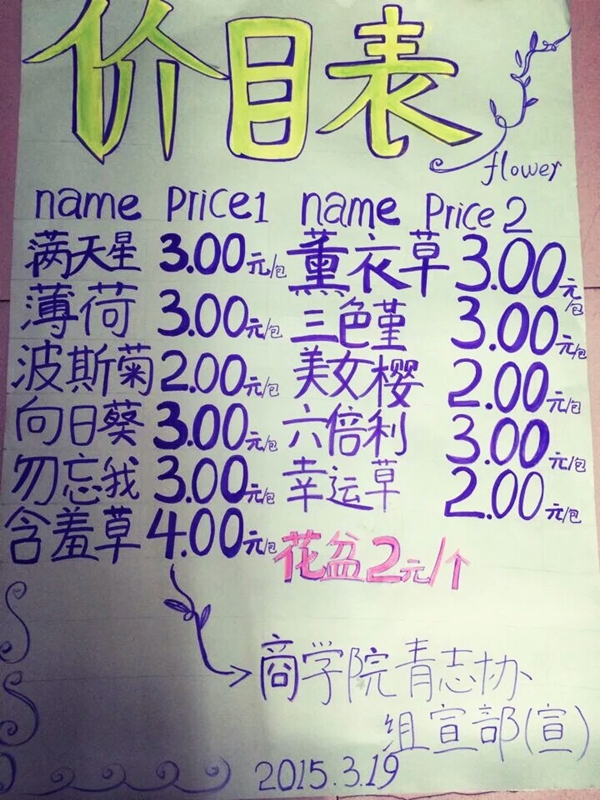 价目表
flower
name Price1 name Price 2
满天星 3.00元/包 薰衣草 3.00元/包
薄荷 3.00元/包 三色堇 3.00元/包
波斯菊 2.00元/包 美女樱 2.00元/包
向日葵 3.00元/包 六倍利 3.00元/包
勿忘我 3.00元/包 幸运草 2.00元/包
含羞草 4.00元/包 花盆2元/个
商学院青志协
组宣部(宣)
2015.3.19